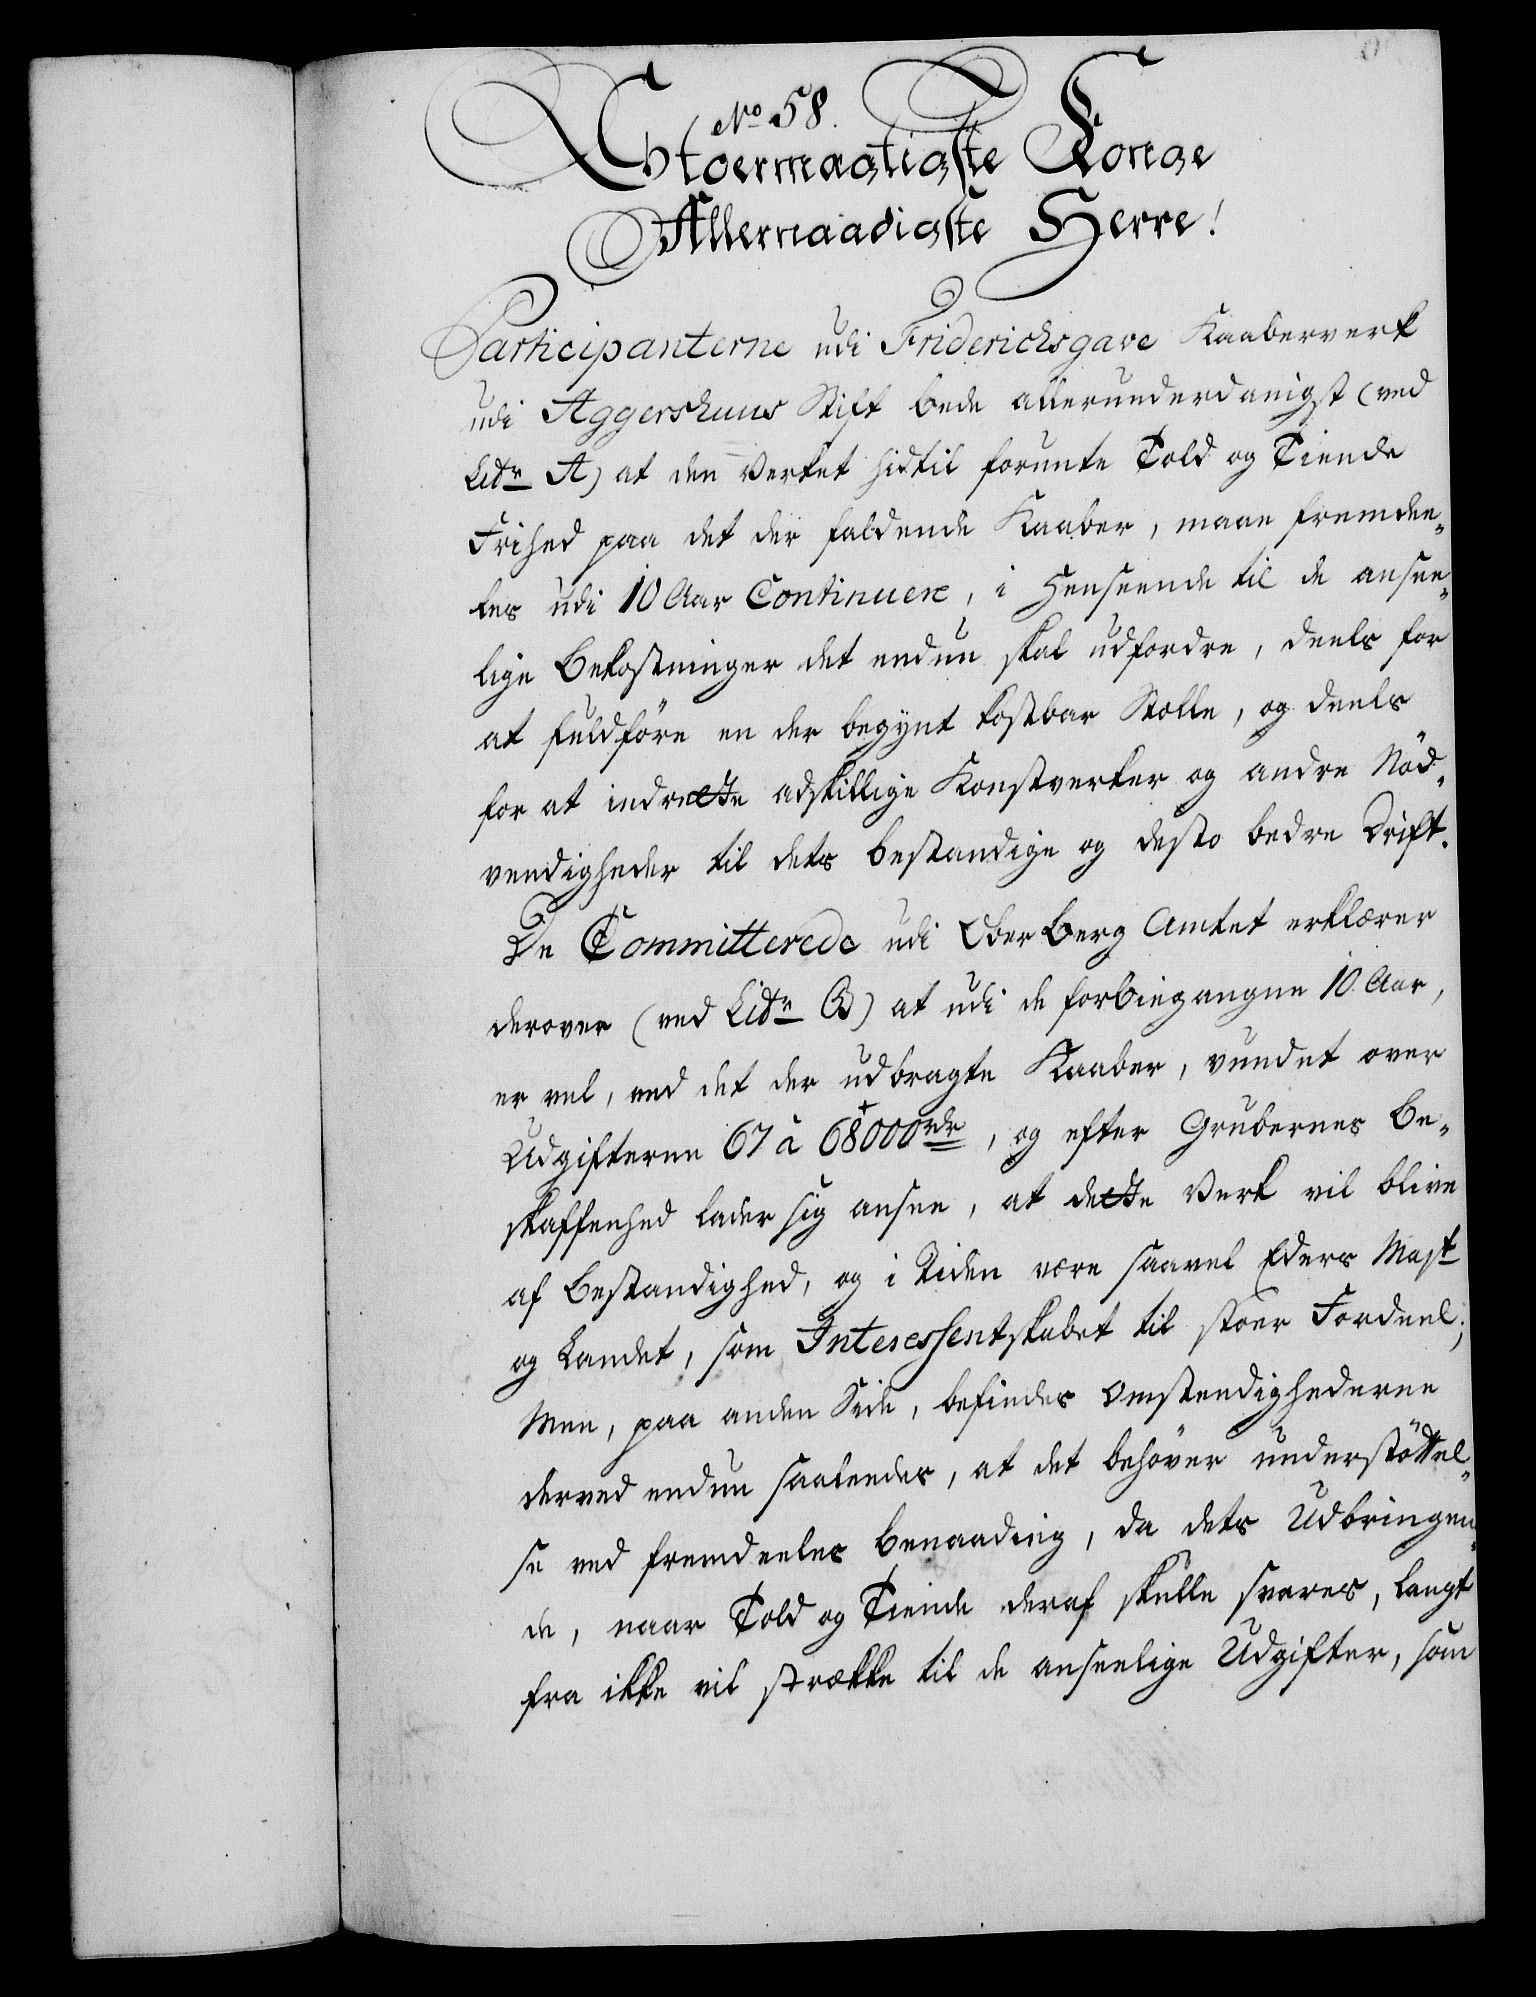 No 58.
Stormægtigste Konge
Allernaadigste Herre!
Participanterne udi Friderichsgave Kaaberverk
udi Aggershuus Stift bede allerunderdanigst (ved
Litr A) at den Verket hidtil forunte Told og Tiende
Frihed paa det der faldende Kaaber, maae fremdee-
les udi 10 Aar Continuere, i Henseende til de ansee-
lige Bekostninger det endnu skal udfordre, deels for
at fuldföre en der begynt kostbar Stolle, og deels
for at indrette adskillige Konstverker og andre Nöd-
vendigheder til dets bestandige og desto bedre Drift.
De Committerede udi Ober Berg Amtet erklærer
derover (ved Litr B) at udi de forbiegangne 10 Aar,
er vel, ved det der udbragte Kaaber, vundet over
Udgifterne 67 à 68000 rdr, og efter Grubernes Be-
skaffenhed lader sig ansee, at dette Verk vil blive
af Bestandighed, og i Tiden være saavel Eders Mayt
og Landet, som Interessentskabet til stoer Fordeel;
Men, paa anden Side, befindes Omstendighederne
derved endnu saaledes, at det behöver understöttel-
se ved fremdeeles Benaading, da dets Udbringen-
de, naar Told og Tiende deraf skulle svares, langt
fra ikke vil strække til de anseelige Udgifter, som